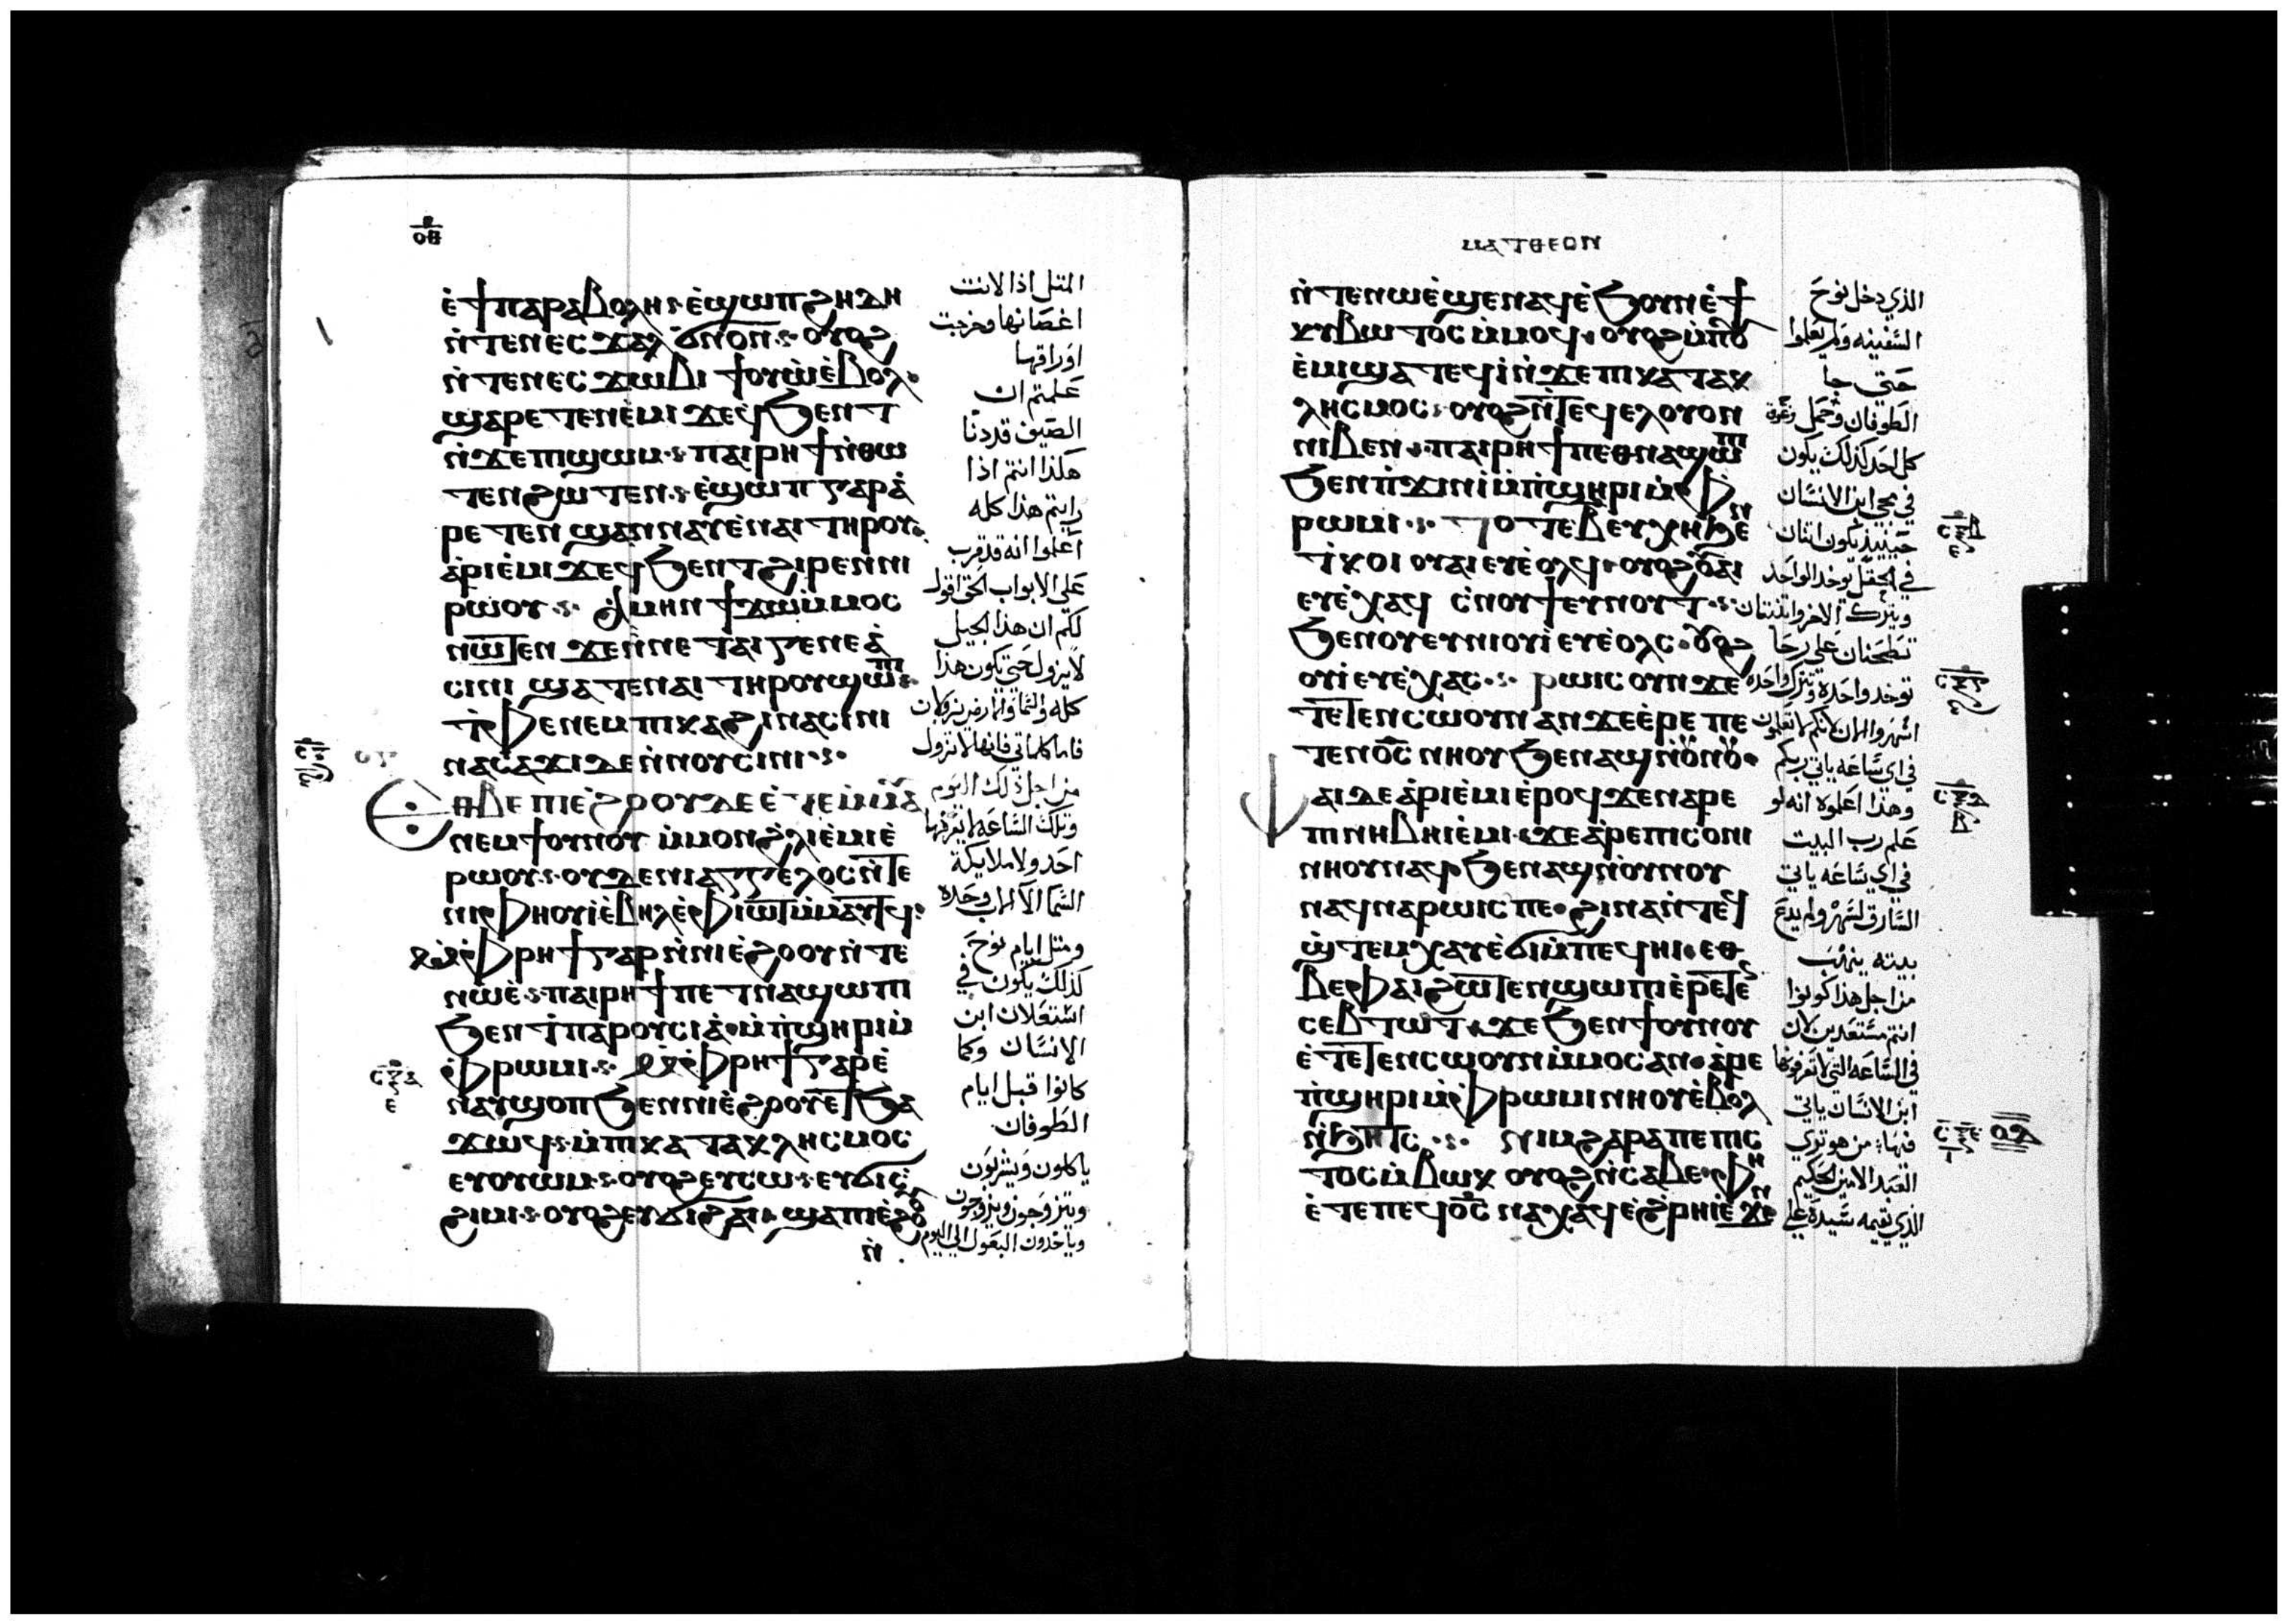 ⲉ̀ϯⲡⲁⲣⲁⲃⲟⲗⲏ ⲉ̀ϣⲱⲡ ϩⲏⲇⲏ
ⲛ̀ⲧⲉⲛⲉⲥϫⲁⲗ ϭⲛⲟⲛ ⲟⲩⲟϩ
ⲛ̀ⲧⲉⲛⲉⲥϫⲱⲃⲓ ϯⲟⲩⲱ̀ ⲉ̀ⲃⲟⲗ
ϣⲁⲣⲉⲧⲉⲛⲉ̀ⲙⲓ ϫⲉϥϧⲉⲛⲧ
ⲛ̀ϫⲉⲡⲓϣⲱⲙ ⲡⲁⲓⲣⲏϯ ⲛ̀ⲑⲱ
ⲧⲉⲛ ϩⲱⲧⲉⲛ ⲉ̀ϣⲱⲡ ⲅⲁⲣ ⲁ̀
ⲣⲉⲧⲉⲛϣⲁⲛⲛⲁⲩ ⲉ̀ⲛⲁⲓ ⲧⲏⲣⲟⲩ
ⲁ̀ⲣⲓⲉ̀ⲙⲓ ϫⲉϥϧⲉⲛⲧ ϩⲓⲣⲉⲛⲛⲓ
ⲣⲱⲟⲩ ⲁ̀ⲙⲏⲛ ϯϫⲱ ⲙ̀ⲙⲟⲥ
ⲛⲱⲧⲉⲛ ϫⲉⲛⲛⲉ ⲧⲁⲓⲅⲉⲛⲉⲁ̀
ⲥⲓⲛⲓ ϣⲁⲧⲉⲛⲁⲓ ⲧⲏⲣⲟⲩ ϣⲱⲡⲓ
ⲧ̀ⲫⲉ ⲛⲉⲙ ⲡⲓⲕⲁϩⲓ ⲛⲁⲥⲓⲛⲓ
ⲛⲁⲥⲁϫⲓ ⲇⲉ ⲛ̀ⲛⲟⲩⲥⲓⲛⲓ
ⲉⲑⲃⲉ ⲡⲓⲉ̀ϩⲟⲟⲩ ⲇⲉ ⲉ̀ⲧⲉⲙ̀ⲙⲁⲩ
ⲛⲉⲙ ϯⲟⲩⲛⲟⲩ ⲙ̀ⲙⲟⲛ ϩ̀ⲗⲓ ⲉ̀ⲙⲓ ⲉ̀
ⲣⲱⲟⲩ ⲟⲩⲇⲉ ⲛⲓⲁⲅⲅⲉⲗⲟⲥ ⲛ̀ⲧⲉ
ⲛⲓⲫⲏⲟⲩⲓ̀ ⲉ̀ⲃⲏⲗ ⲉ̀ⲫⲓⲱⲧ ⲙ̀ⲙⲁⲩⲁⲧϥ
ⲙ̀ⲫⲣⲏϯ ⲅⲁⲣ ⲛ̀ⲛⲓⲉ̀ϩⲟⲟⲩ ⲛ̀ⲧⲉ
ⲛⲱⲉ̀ ⲡⲁⲓⲣⲏϯ ⲡⲉⲧⲛⲁϣⲱⲡⲓ
ϧⲉⲛ ϯⲡⲁⲣⲟⲩⲥⲓⲁ̀ ⲙ̀ⲡ̀ϣⲏⲣⲓ ⲙ̀
ⲫ̀ⲣⲱⲙⲓ ⲙ̀ⲫⲣⲏϯ ⲅⲁⲣ ⲉ̀
ⲛⲁⲩϣⲟⲡ ϧⲉⲛ ⲛⲓⲉ̀ϩⲟⲟⲩ ⲉⲧϧⲁ
ϫⲱϥ ⲙ̀ⲡⲓⲕⲁⲧⲁⲕⲗⲏⲥⲙⲟⲥ
ⲉⲩⲟⲩⲱⲙ ⲟⲩⲟϩ ⲉⲩⲥⲱ ⲉⲩϭⲓⲥ
ϩⲓⲙⲓ ⲟⲩⲟϩ ⲉⲩϭⲓϩⲁⲓ ϣⲁ ⲡⲓⲉ̀ϩⲟⲟⲩ
ⲛ̀
المتل اذا لانت
اغصانها وخرجت
اوراقها
علمتم ان
الصيف قددنا
هكذا انتم اذا
رايتم هذا كله
اعلموا انه قدقرب
علي الابواب الحق اقول
لكم ان هذا الجيل
لايزول حتي يكون هذا
فاما كلماتي فانها لاتزول
من اجل ذلك اليوم
وتلك الساعه لايعرفها
احد ولا ملايكة
السما الا الاب وحده
ومتل ايام نوح
كذلك يكون في
استعلان ابن
الانسان وكما
كانوا قبل ايام
الطوفان
ياكلون ويشربون
ويتزوجون ويزوجون
ⲙⲁⲧⲑⲉⲟⲛ
ⲛ̀ⲧⲉⲛⲱⲉ̀ ϣⲉⲛⲁϥ ⲉ̀ϧⲟⲩⲛ ⲉ̀ϯ
ⲕⲩⲃⲱⲧⲟⲥ ⲙ̀ⲙⲟϥ ⲟⲩⲟϩ ⲙ̀ⲡⲟⲩ
ⲉ̀ⲙⲓ ϣⲁⲧⲉϥⲓ̀ ⲛ̀ϫⲉⲡⲓⲕⲁⲧⲁⲕ
ⲗⲏⲥⲙⲟⲥ ⲟⲩⲟϩ ⲛ̀ⲧⲉϥⲉⲗ ⲟⲩⲟⲛ
ⲛⲓⲃⲉⲛ ⲡⲁⲓⲣⲏϯ ⲡⲉⲑⲛⲁϣⲱⲡⲓ
ϧⲉⲛ ⲡ̀ϫⲓⲛⲓ̀ ⲙ̀ⲡ̀ϣⲏⲣⲓ ⲙ̀ⲫ
ⲣⲱⲙⲓ ⲧⲟⲧⲉ ⲃ ⲉⲩⲭⲏ ϧⲉⲛ
ⲧ̀ⲕⲟⲓ ⲟⲩⲁⲓ ⲉⲩⲉ̀ⲟⲗϥ ⲟⲩⲟϩ ⲟⲩⲁⲓ
ⲉⲩⲉ̀ⲭⲁϥ ⲥ̀ⲛⲟⲩϯ ⲉⲩⲛⲟⲩⲧ
ϧⲉⲛ ⲟⲩⲉⲩⲛⲓ ⲟⲩⲓ̀ ⲉⲩⲉ̀ⲟⲗⲥ ⲟⲩⲟϩ
ⲟⲩⲓ̀ ⲉⲩⲉ̀ⲭⲁⲥ ⲣⲱⲓⲥ ⲟⲩⲛ ϫⲉ
ⲧⲉⲧⲉⲛⲥⲱⲟⲩⲛ ⲁⲛ ϫⲉ ⲉ̀ⲣⲉ ⲡⲉ
ⲧⲉⲛⲟ̅ⲥ̅ ⲛⲏⲟⲩ ϧⲉⲛ ⲁϣ ⲛ̀ⲟⲩⲛⲟⲩ
ⲫⲁⲓ ⲇⲉ ⲁ̀ⲣⲓⲉ̀ⲙⲓ ⲉ̀ⲣⲟϥ ϫⲉⲛⲁⲣⲉ
ⲡⲓⲛⲏⲃⲏⲓ ⲉ̀ⲙⲓ ϫⲉ ⲁ̀ⲣⲉ ⲡⲓⲥⲟⲛⲓ
ⲛⲏⲟⲩ ⲛⲁϥ ϧⲉⲛ ⲁϣ ⲛ̀ⲟⲩⲛⲟⲩ
ⲛⲁϥⲛⲁⲣⲱⲓⲥ ⲡⲉ ϩⲓⲛⲁ ⲛ̀ⲧⲉϥ
ϣ̀ⲧⲉⲙⲭⲁⲩ ⲉ̀ϭⲓ ⲙ̀ⲡⲉϥⲏⲓ ⲉⲑ
ⲃⲉⲫⲁⲓ ϩⲱⲧⲉⲛ ϣⲱⲡⲓ ⲉ̀ⲣⲉⲧⲉⲛ
ⲥⲉⲃⲧⲱⲧ ϫⲉ ϧⲉⲛ ϯⲟⲩⲛⲟⲩ
ⲉ̀ⲧⲉⲧⲉⲛⲥⲱⲟⲩⲛ ⲙ̀ⲙⲟⲥ ⲁⲛ ⲁ̀ⲣⲉ
ⲡ̀ϣⲏⲣⲓ ⲙ̀ⲫⲣⲱⲙⲓ ⲛⲏⲟⲩ ⲉ̀ⲃⲟⲗ
ⲛ̀ϧⲏⲧⲥ ⲛⲓⲙ ϩⲁⲣⲁ ⲡⲉ ⲡⲓⲥ
ⲧⲟⲥ ⲙ̀ⲃⲱⲕ ⲟⲩⲟϩ ⲛ̀ⲥⲁⲃⲉ ⲫⲏ
ⲉ̀ⲧⲉ ⲡⲉϥⲟ̅ⲥ̅ ⲛⲁⲭⲁϥ ⲉ̀ϩ̀ⲣⲏⲓ ⲉ̀ϫⲉⲛ
الذي دخل نوح
السفينه ولم يعلموا
حتي جا
كل احد كذلك يكون
في مجي ابن الانسان
حينيذ يكون اتنان
في الحقل يوخد الواحد
ويترك الاخر واتنتان
تطحنان علي رحا
توخد واحده وتترك واحده
في اي ساعه ياتي ربكم
وهذا اعلموه انه لو
علم رب البيت
في اي ساعه ياتي
السارق لسهر ولم يدع
بيته ينهب
من اجل هذا كونوا
انتم مستعدين لان
في الساعه التي لاتعرفونها
ابن الانسان ياتي
فيها من هو تري
العبد الامين الحكيم
الذي يقيمه سيده علي